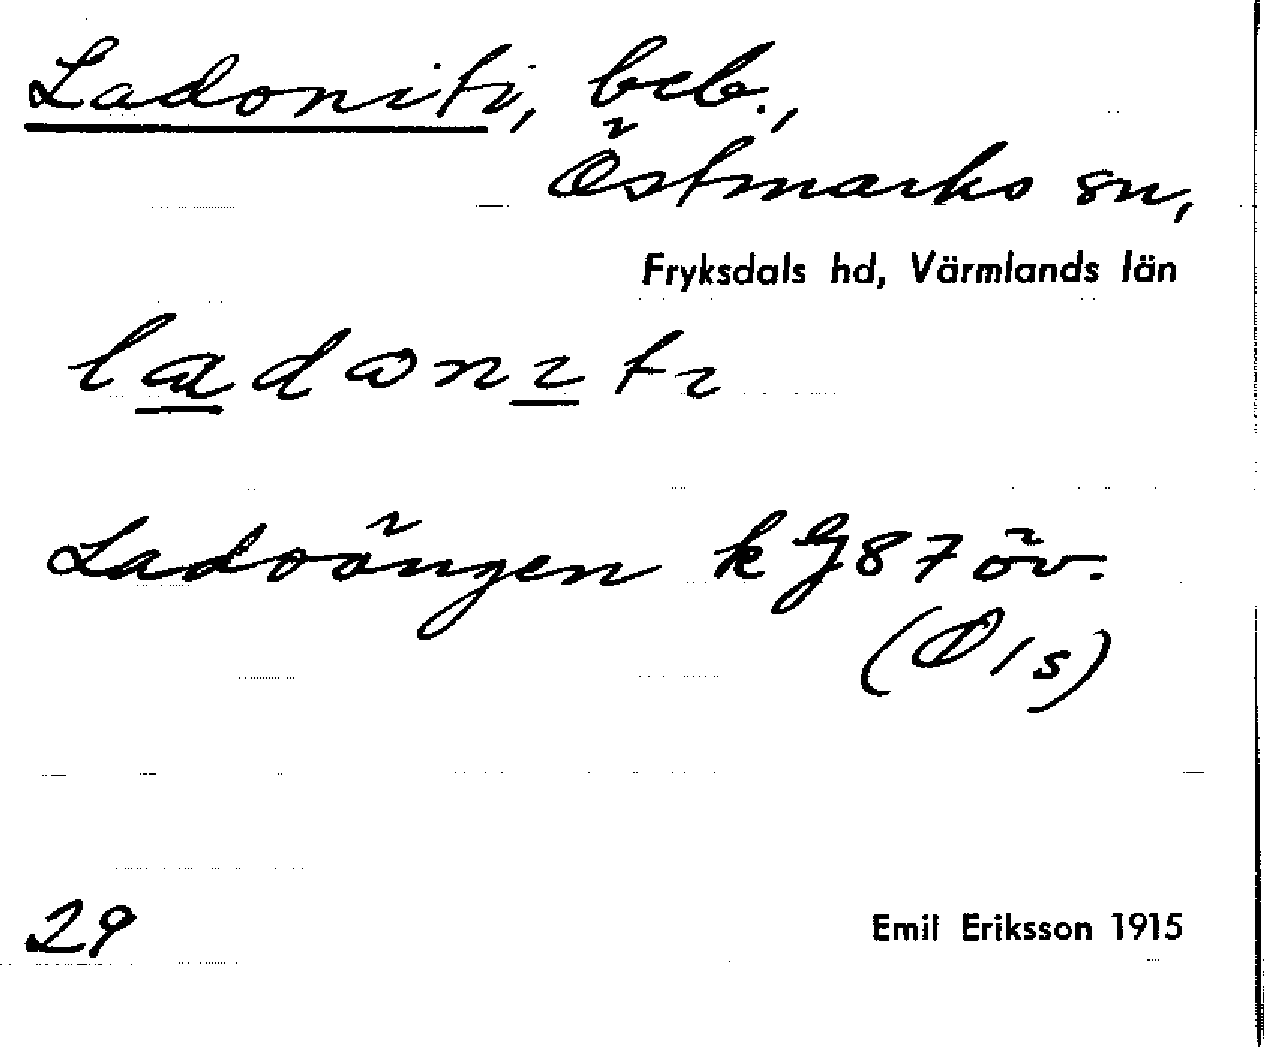 Ladoniti, beb.,
Östmarks sn,
Fryksdals hd, Värmlands län
ladoniti
Ladoängen kG87 öv.
(Ö/s)
29
Emil Eriksson 1915